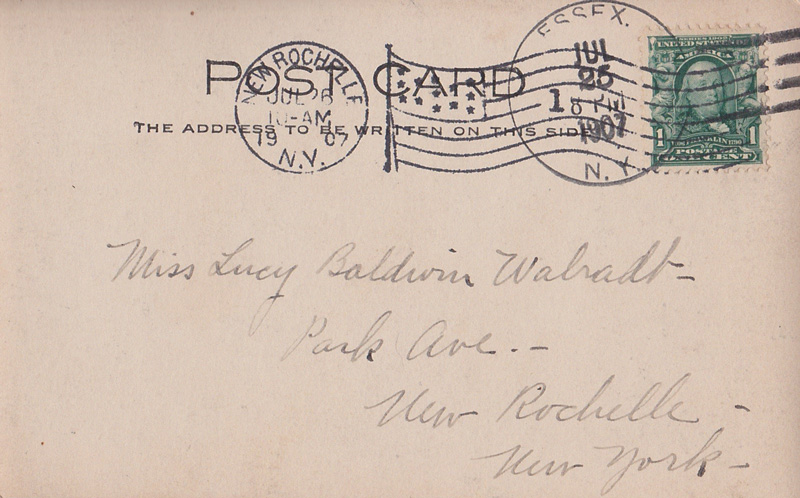 POST CARD
THE ADDRESS TO BE WRITTEN ON THIS SIDE
NEW ROCHELLE
JUL 26
10-AM
19 07
N.Y.
ESSEX.
JUL
25
1
1907
N.Y.
UNITED STATES OF AMERICA
1 FRANKLIN 1
POSTAGE
ONE CENT
Miss Lucy Baldwin Walradt-
Park Ave.-
New Rochelle -
New York-